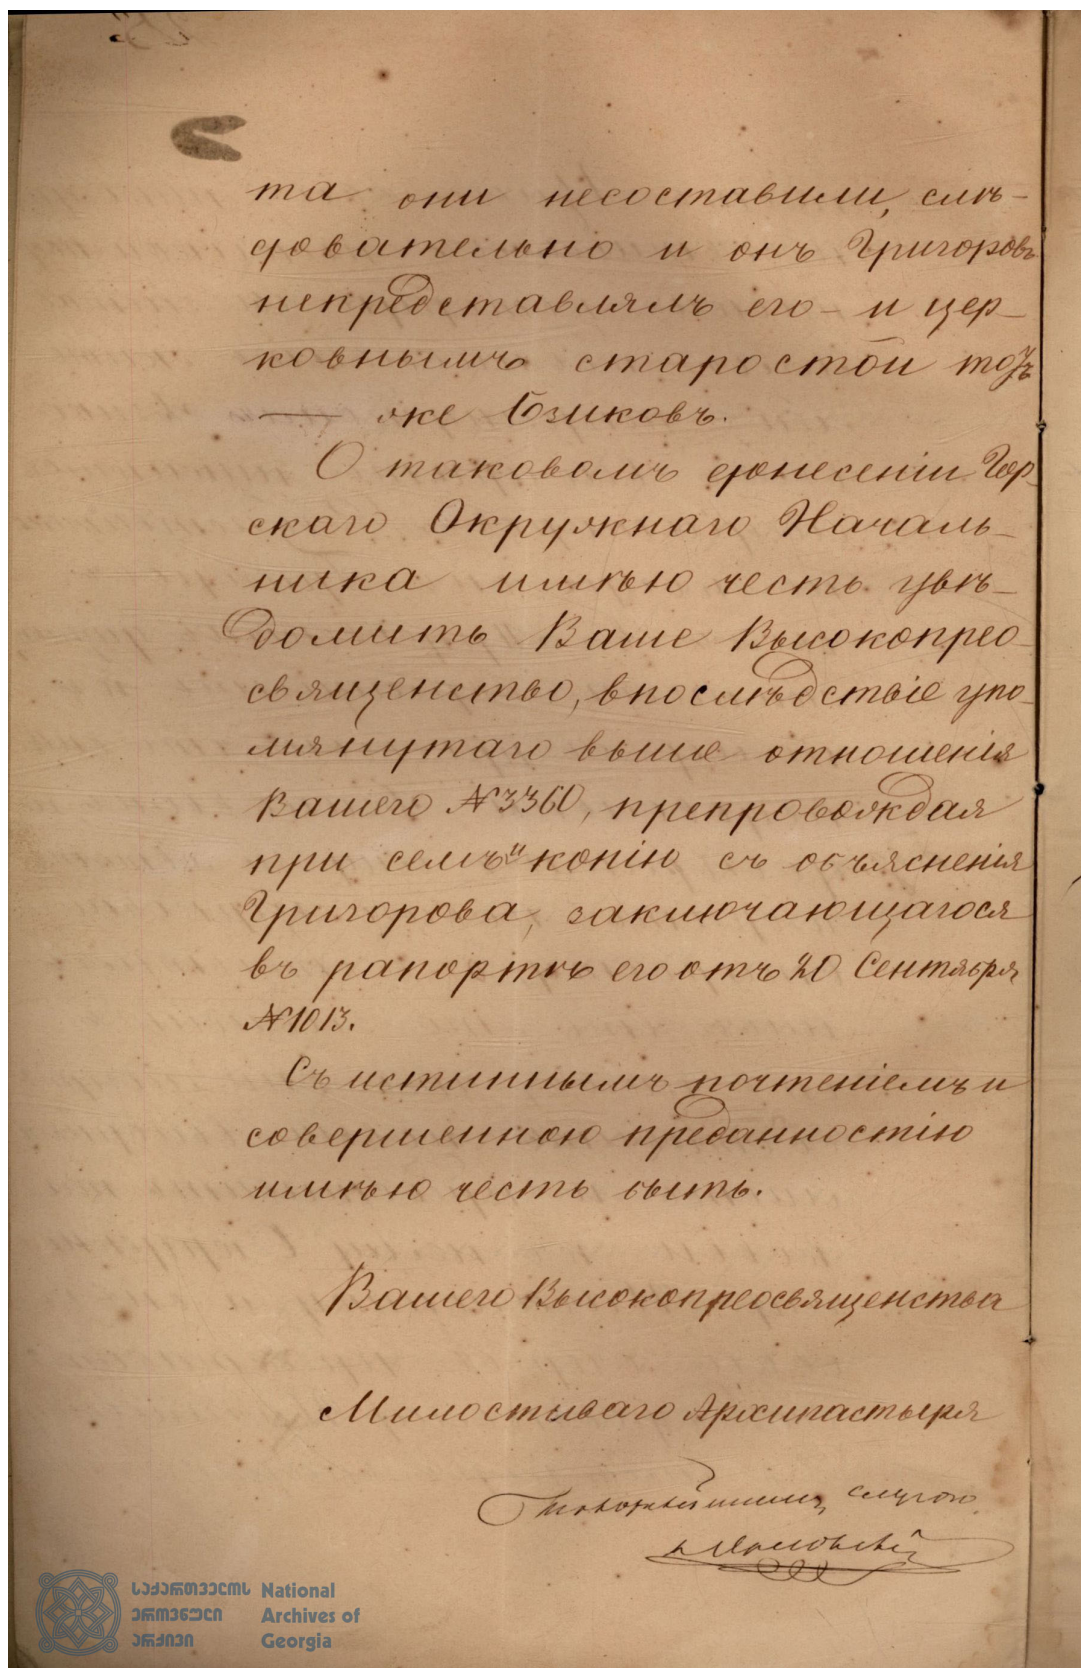 та они несоставили, слѣ-
довательно и онъ Григоровъ
непредставлялъ его - и цер-
ковнымъ старостой тотъ
же Бзиковъ.
О таковомъ донесеніи Гор-
скаго Окружнаго Началь-
ника имѣю честь увѣ-
домить Ваше Высокопрео-
священство, впослѣдствіе упо-
мянутаго выше отношенія
Вашего №3360, препровождая
при семъ и копію съ объясненія
Григорова, заключающагося
въ рапортѣ его отъ 20 Сентября
№1013.
Съ истиннымъ почтеніемъ и
совершенною преданностію
имѣю честь быть.
Вашего Высокопреосвященства
Милостиваго Архипастыря
слугою
საქართველოს National
ეროვნული Archives of
არქივი Georgia